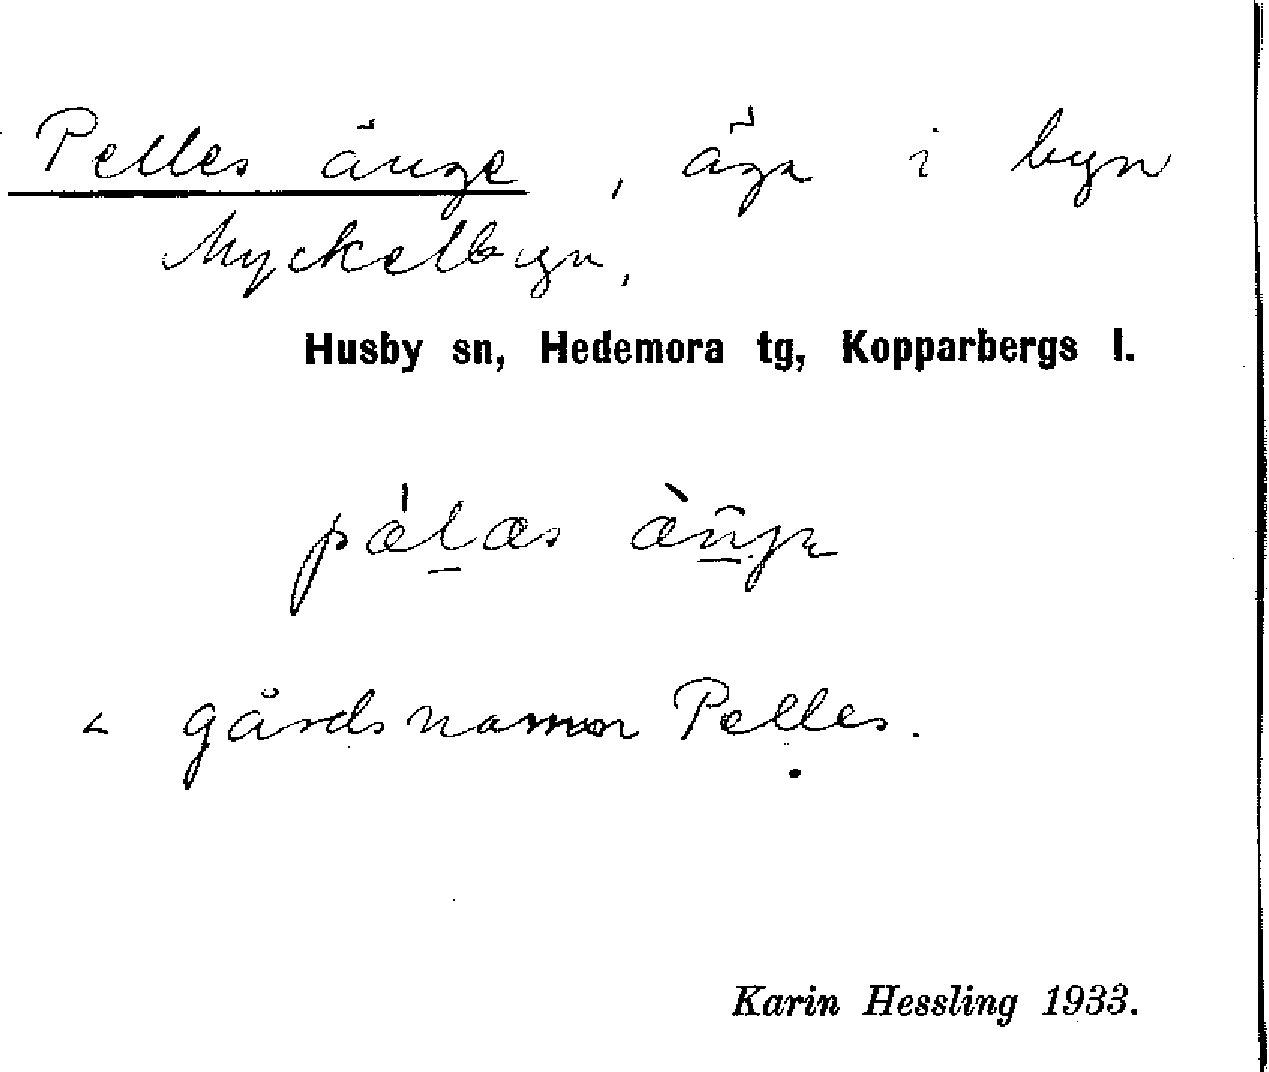 Pelles änge, äga i byn
Myckelbyn.
Husby sn, Hedemora tg, Kopparbergs l.
< gårdsnamn Pelles.
Karin Hessling 1933.